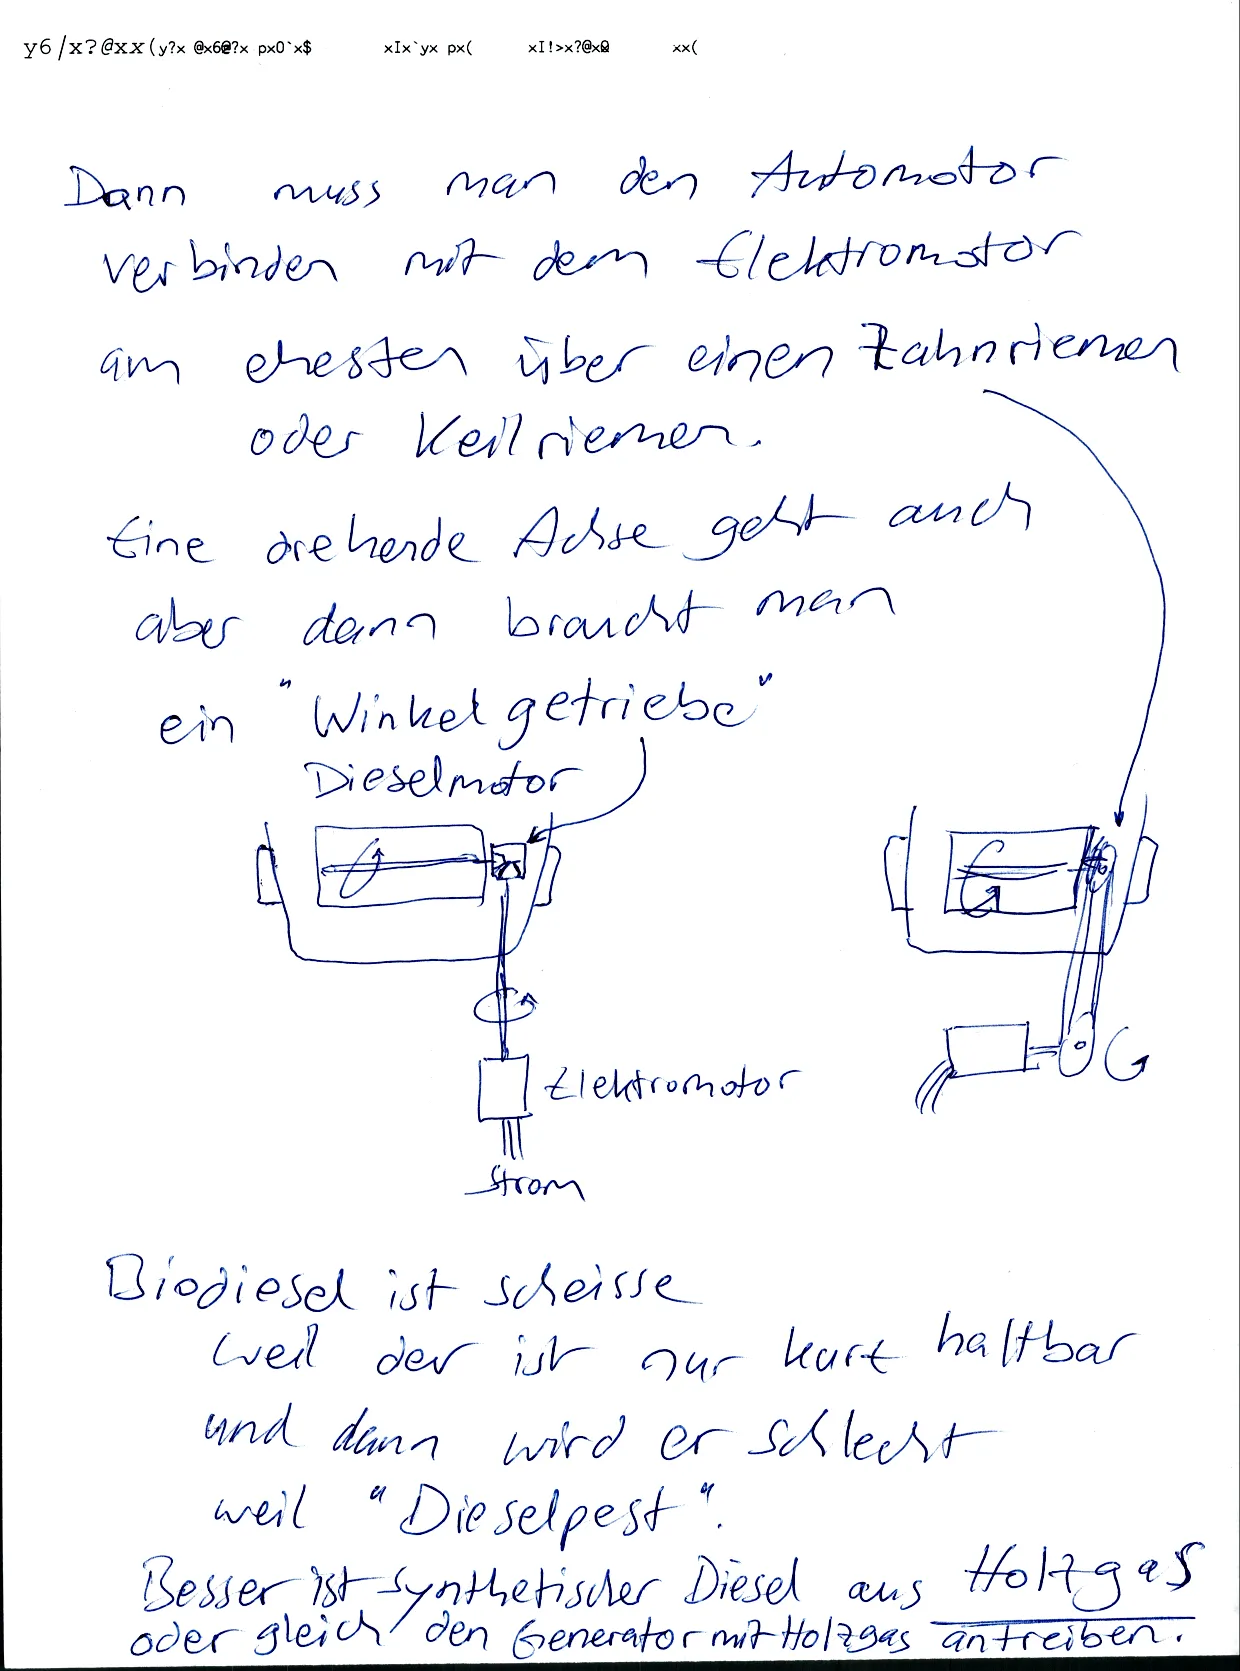 y6/x?@xx(y?x @x6@?x px0`x$ xIx`yx px( xI!>x?@xQ xx(
Dann muss man den Automotor
verbinden mit dem Elektromotor
am ehesten über einen Zahnriemen
oder Keilriemen.
Eine drehende Achse geht auch
aber dann braucht man
ein "Winkelgetriebe"
Dieselmotor
Elektromotor
Strom
Biodiesel ist scheisse
weil der ist nur kurz haltbar
und dann wird er schlecht
weil "Dieselpest".
Besser ist synthetischer Diesel aus Holzgas
oder gleich den Generator mit Holzgas antreiben.